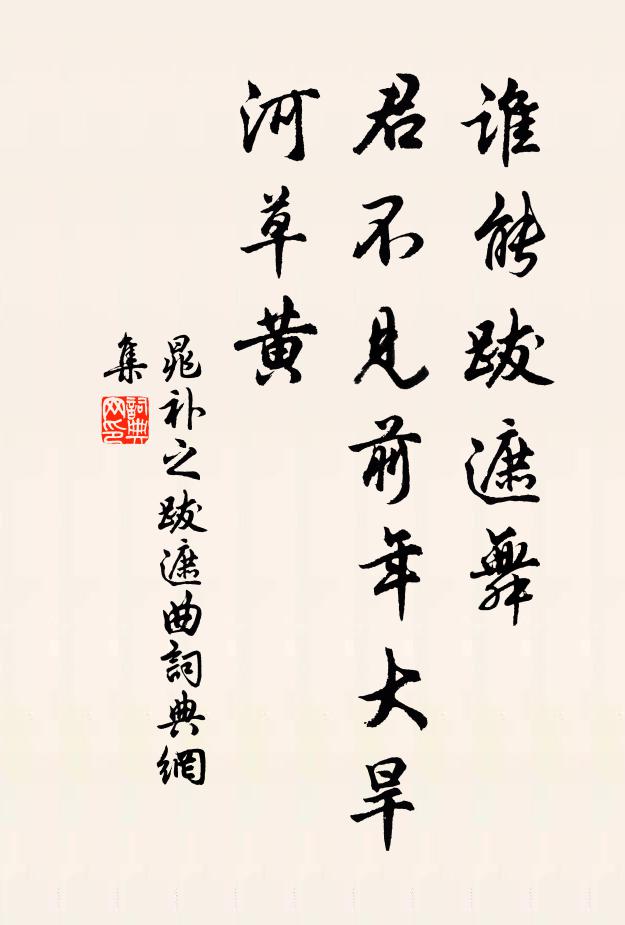 誰能跋遮舞
君不見前年大旱
河草黃
晁补之跋遮曲詞典網
集
詞典
网印